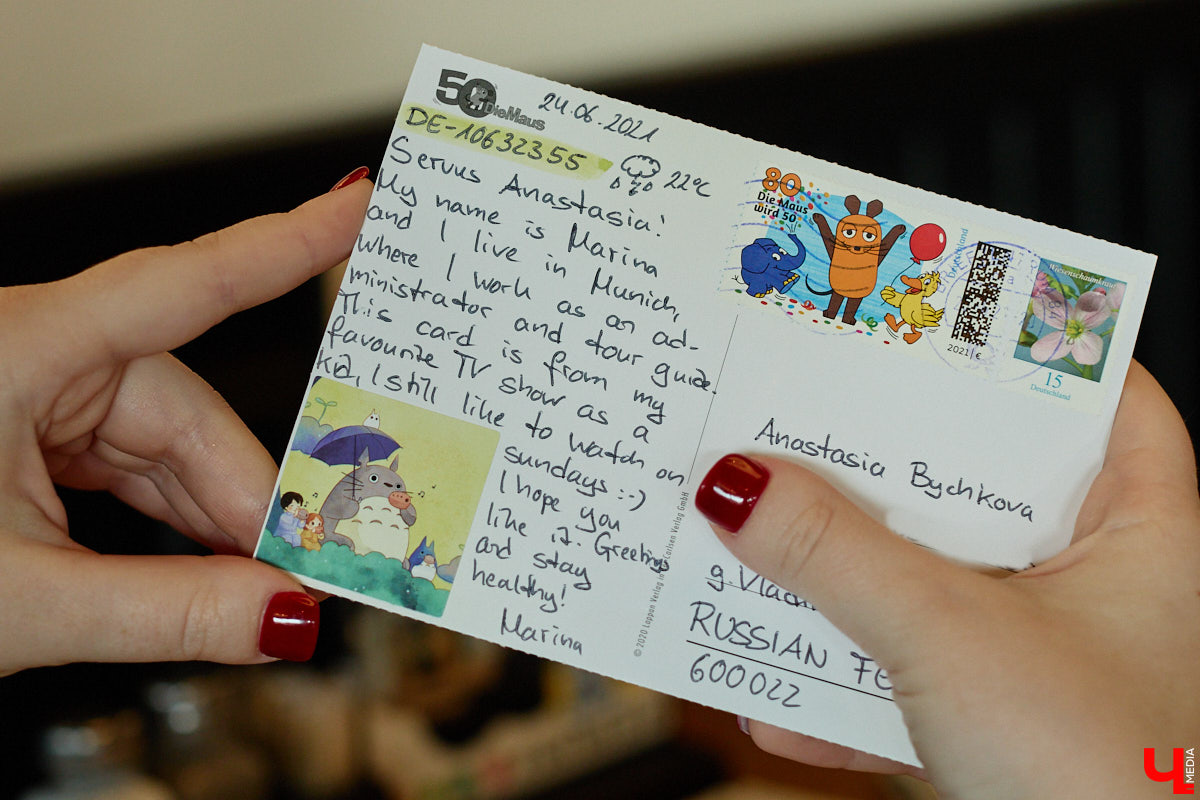 50 DieMaus
24.06.2021
DE-10632355
22°C
Servus Anastasia!
My name is Marina
and I live in Munich,
where I work as an ad-
ministrator and tour guide.
This card is from my
favourite TV show as a
kid, I still like to watch on
sundays :-)
I hope you
like it. Greetings
and stay
healthy!
Marina
© 2020 Lappan Verlag in Carlsen Verlag GmbH
80
Die Maus
wird 50
Deutschland
2021 €
Wiesenschaumkraut
15
Deutschland
Anastasia Bychkova
g. Vladi
RUSSIAN FE
600022
Ч MEDIA